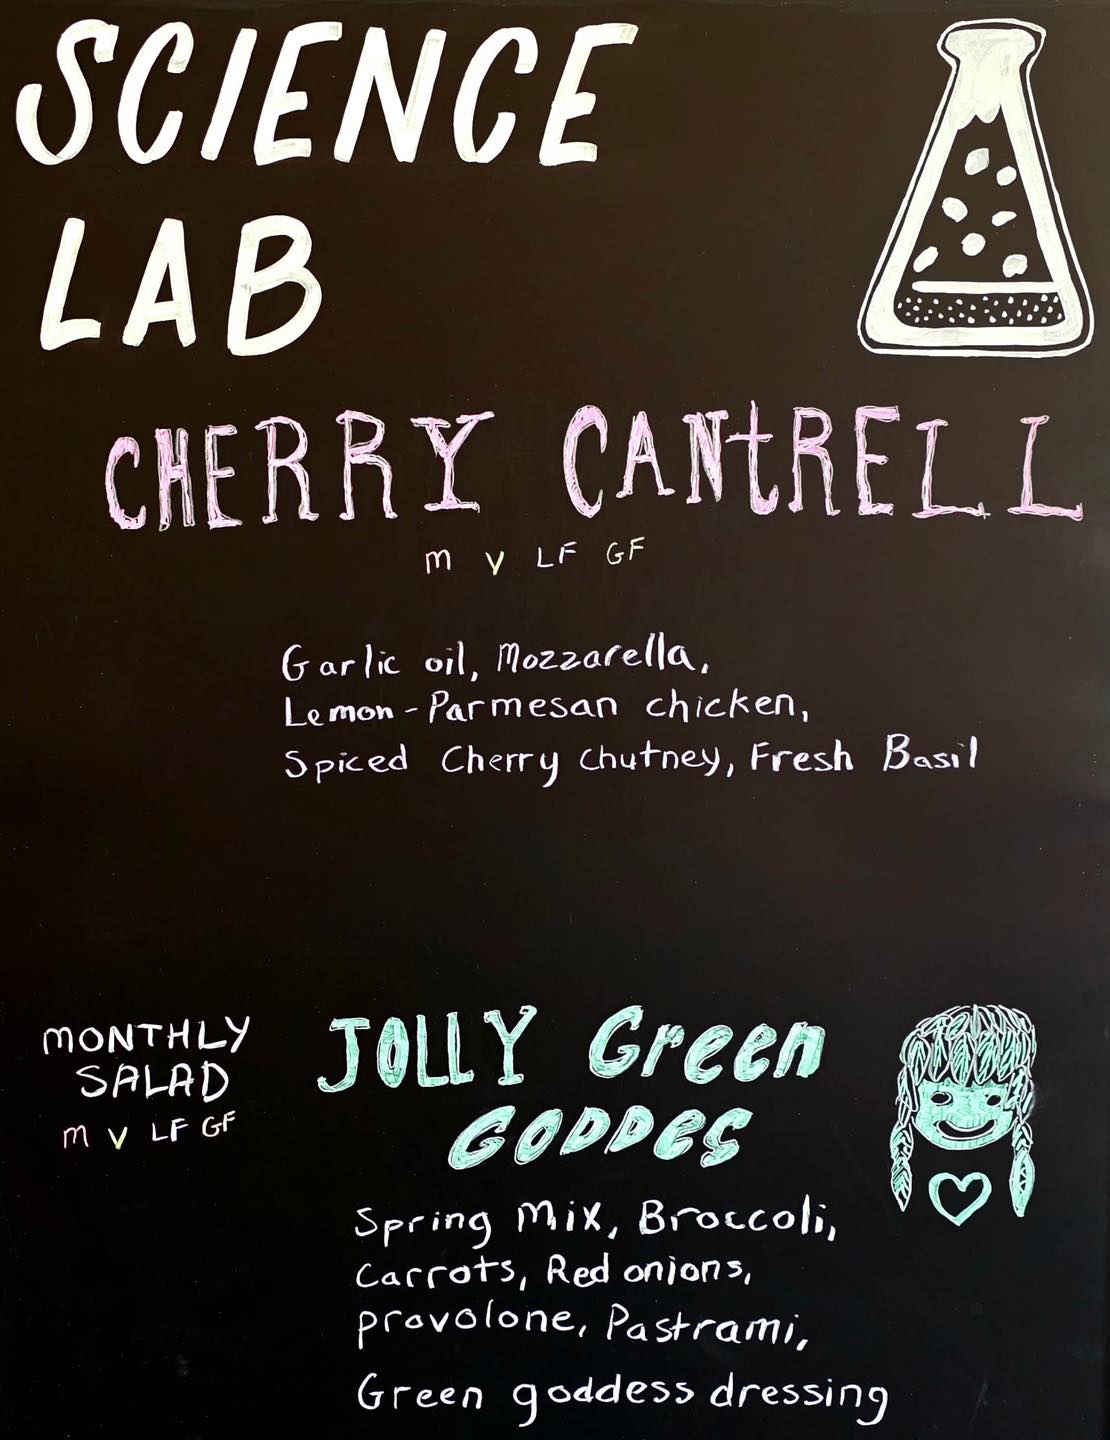 SCIENCE
LAB
CHERRY CANtRELL
m V LF GF
Garlic oil, Mozzarella,
Lemon-Parmesan chicken,
Spiced Cherry Chutney, Fresh Basil
MONTHLY
SALAD
m V LF GF
JOLLY Green
GODDES
Spring Mix, Broccoli,
Carrots, Red onions,
provolone, Pastrami,
Green goddess dressing